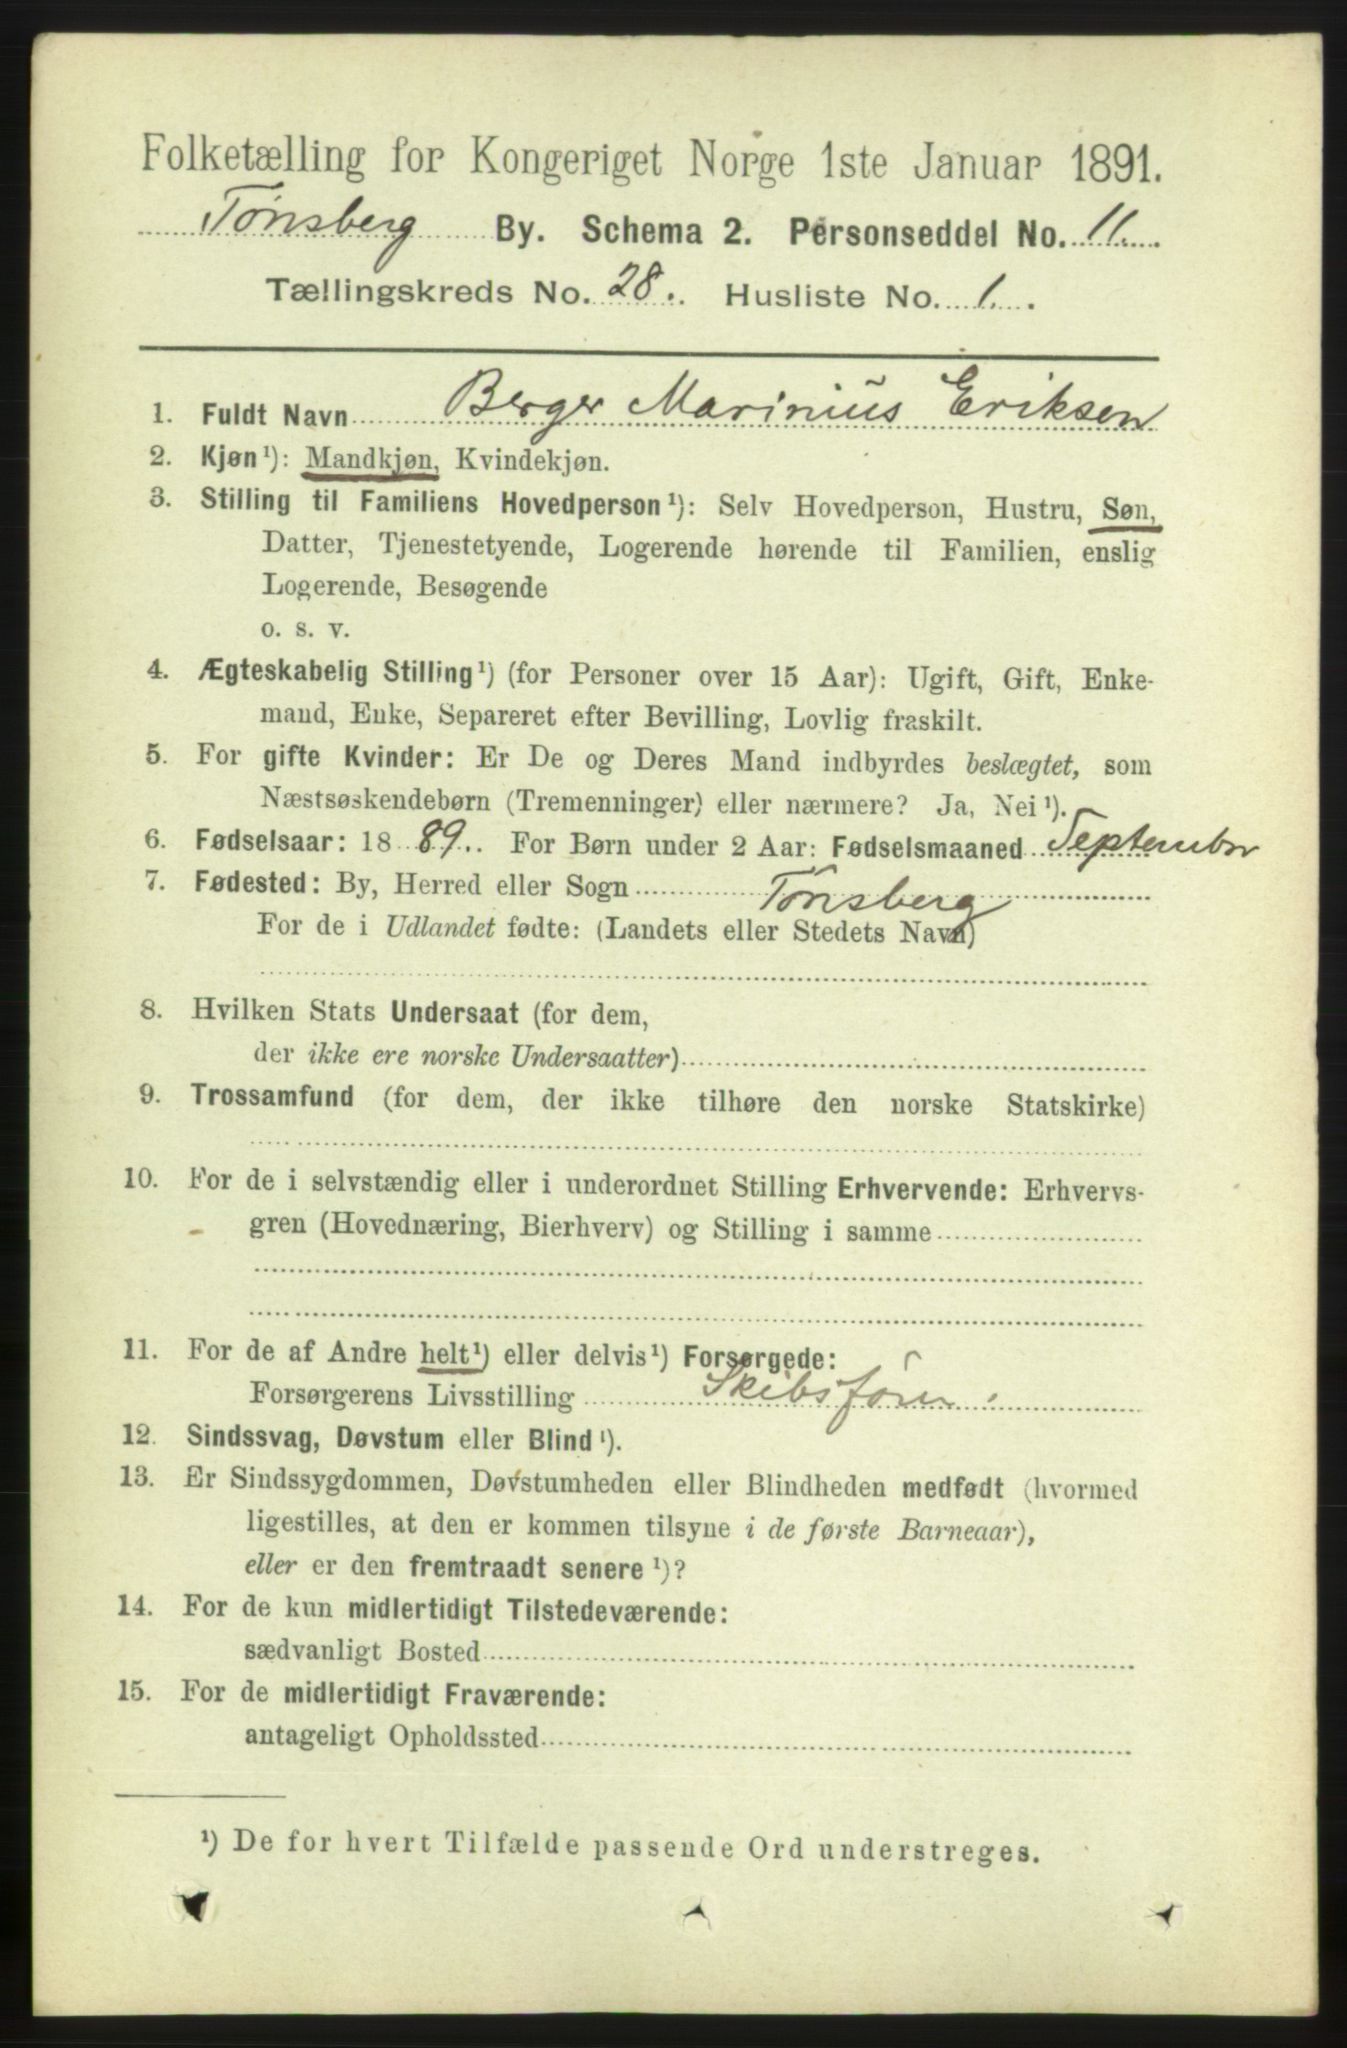 Folketælling for Kongeriget Norge 1ste Januar 1891.
Tønsberg By. Schema 2. Personseddel No. 11.
Tællingskreds No. 28. Husliste No. 1.
1. Fuldt Navn Berger Marinius Eriksen
2. Kjøn¹): Mandkjøn, Kvindekjøn.
3. Stilling til Familiens Hovedperson¹): Selv Hovedperson, Hustru, Søn,
Datter, Tjenestetyende, Logerende hørende til Familien, enslig
Logerende, Besøgende
o. s. v.
4. Ægteskabelig Stilling¹) (for Personer over 15 Aar): Ugift, Gift, Enke-
mand, Enke, Separeret efter Bevilling, Lovlig fraskilt.
5. For gifte Kvinder: Er De og Deres Mand indbyrdes beslægtet, som
Næstsøskendebørn (Tremenninger) eller nærmere? Ja, Nei¹).
6. Fødselsaar: 1889. For Børn under 2 Aar: Fødselsmaaned September
7. Fødested: By, Herred eller Sogn Tønsberg
For de i Udlandet fødte: (Landets eller Stedets Navn)
8. Hvilken Stats Undersaat (for dem,
der ikke ere norske Undersaatter)
9. Trossamfund (for dem, der ikke tilhøre den norske Statskirke)
10. For de i selvstændig eller i underordnet Stilling Erhvervende: Erhvervs-
gren (Hovednæring, Bierhverv) og Stilling i samme
11. For de af Andre helt¹) eller delvis¹) Forsørgede:
Forsørgerens Livsstilling Skibsfører
12. Sindssvag, Døvstum eller Blind¹).
13. Er Sindssygdommen, Døvstumheden eller Blindheden medfødt (hvormed
ligestilles, at den er kommen tilsyne i de første Barneaar),
eller er den fremtraadt senere¹)?
14. For de kun midlertidigt Tilstedeværende:
sædvanligt Bosted
15. For de midlertidigt Fraværende:
antageligt Opholdssted
¹) De for hvert Tilfælde passende Ord understreges.